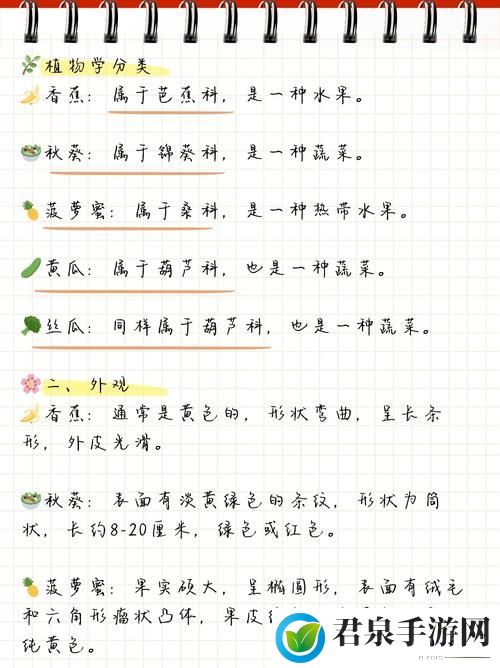 植物学分类
香蕉：属于芭蕉科，是一种水果。
秋葵：属于锦葵科，是一种蔬菜。
菠萝蜜：属于桑科，是一种热带水果。
黄瓜：属于葫芦科，也是一种蔬菜。
丝瓜：同样属于葫芦科，也是一种蔬菜。
二、外观
香蕉：通常是黄色的，形状弯曲，呈长条
形，外皮光滑。
秋葵：表面有淡黄绿色的条纹，形状为筒
状，长约8-20厘米，绿色或红色。
菠萝蜜：果实硕大，呈椭圆形，表面有绒毛
和六角形瘤状凸体，果皮
纯黄色。
君泉手游网